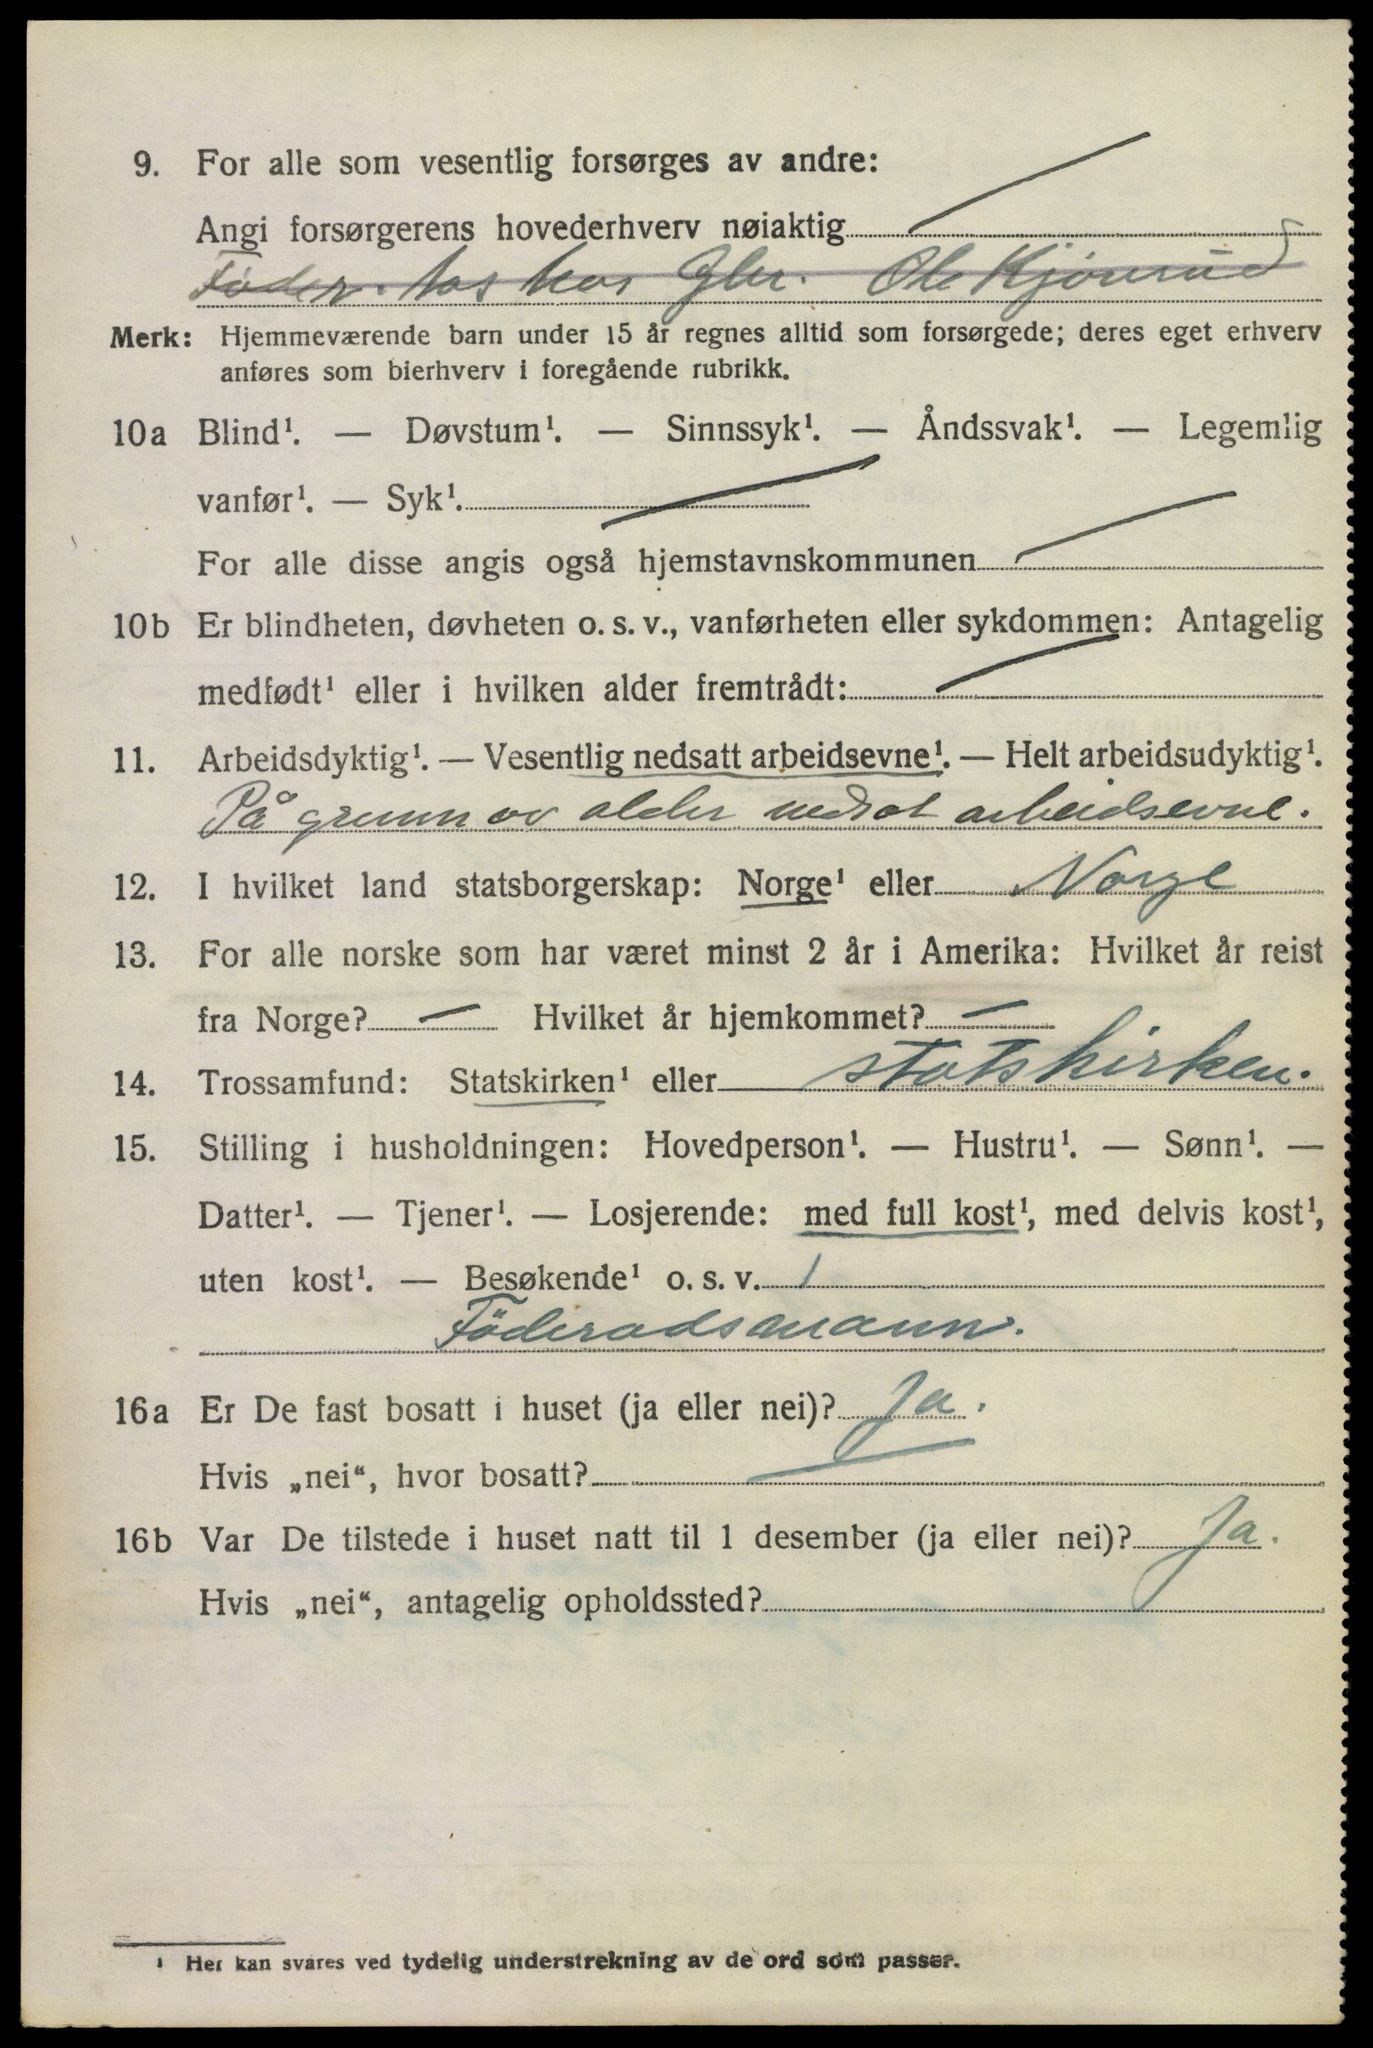 9. For alle som vesentlig forsørges av andre:
Angi forsørgerens hovederhverv nøiaktig
Føder. hos Gbr. Ole Kjönsrud
Merk: Hjemmeværende barn under 15 år regnes alltid som forsørgede; deres eget erhverv
anføres som bierhverv i foregående rubrikk.
10a Blind¹. — Døvstum¹. — Sinnssyk¹. — Åndssvak¹. — Legemlig
vanfør¹. — Syk¹.
For alle disse angis også hjemstavnskommunen
10b Er blindheten, døvheten o. s. v., vanførheten eller sykdommen: Antagelig
medfødt¹ eller i hvilken alder fremtrådt:
11. Arbeidsdyktig¹. — Vesentlig nedsatt arbeidsevne¹. — Helt arbeidsudyktig¹.
På grunn av alder nedsat arbeidsevne.
12. I hvilket land statsborgerskap: Norge¹ eller Norge
13. For alle norske som har været minst 2 år i Amerika: Hvilket år reist
fra Norge? — Hvilket år hjemkommet? —
14. Trossamfund: Statskirken¹ eller statskirken.
15. Stilling i husholdningen: Hovedperson¹. — Hustru¹. — Sønn¹. —
Datter¹. — Tjener¹. — Losjerende: med full kost¹, med delvis kost¹,
uten kost¹. — Besøkende¹ o. s. v. 1
Föderadsmann.
16a Er De fast bosatt i huset (ja eller nei)? Ja.
Hvis „nei“, hvor bosatt?
16b Var De tilstede i huset natt til 1 desember (ja eller nei)? Ja.
Hvis „nei“, antagelig opholdssted?
¹ Her kan svares ved tydelig understrekning av de ord som passer.